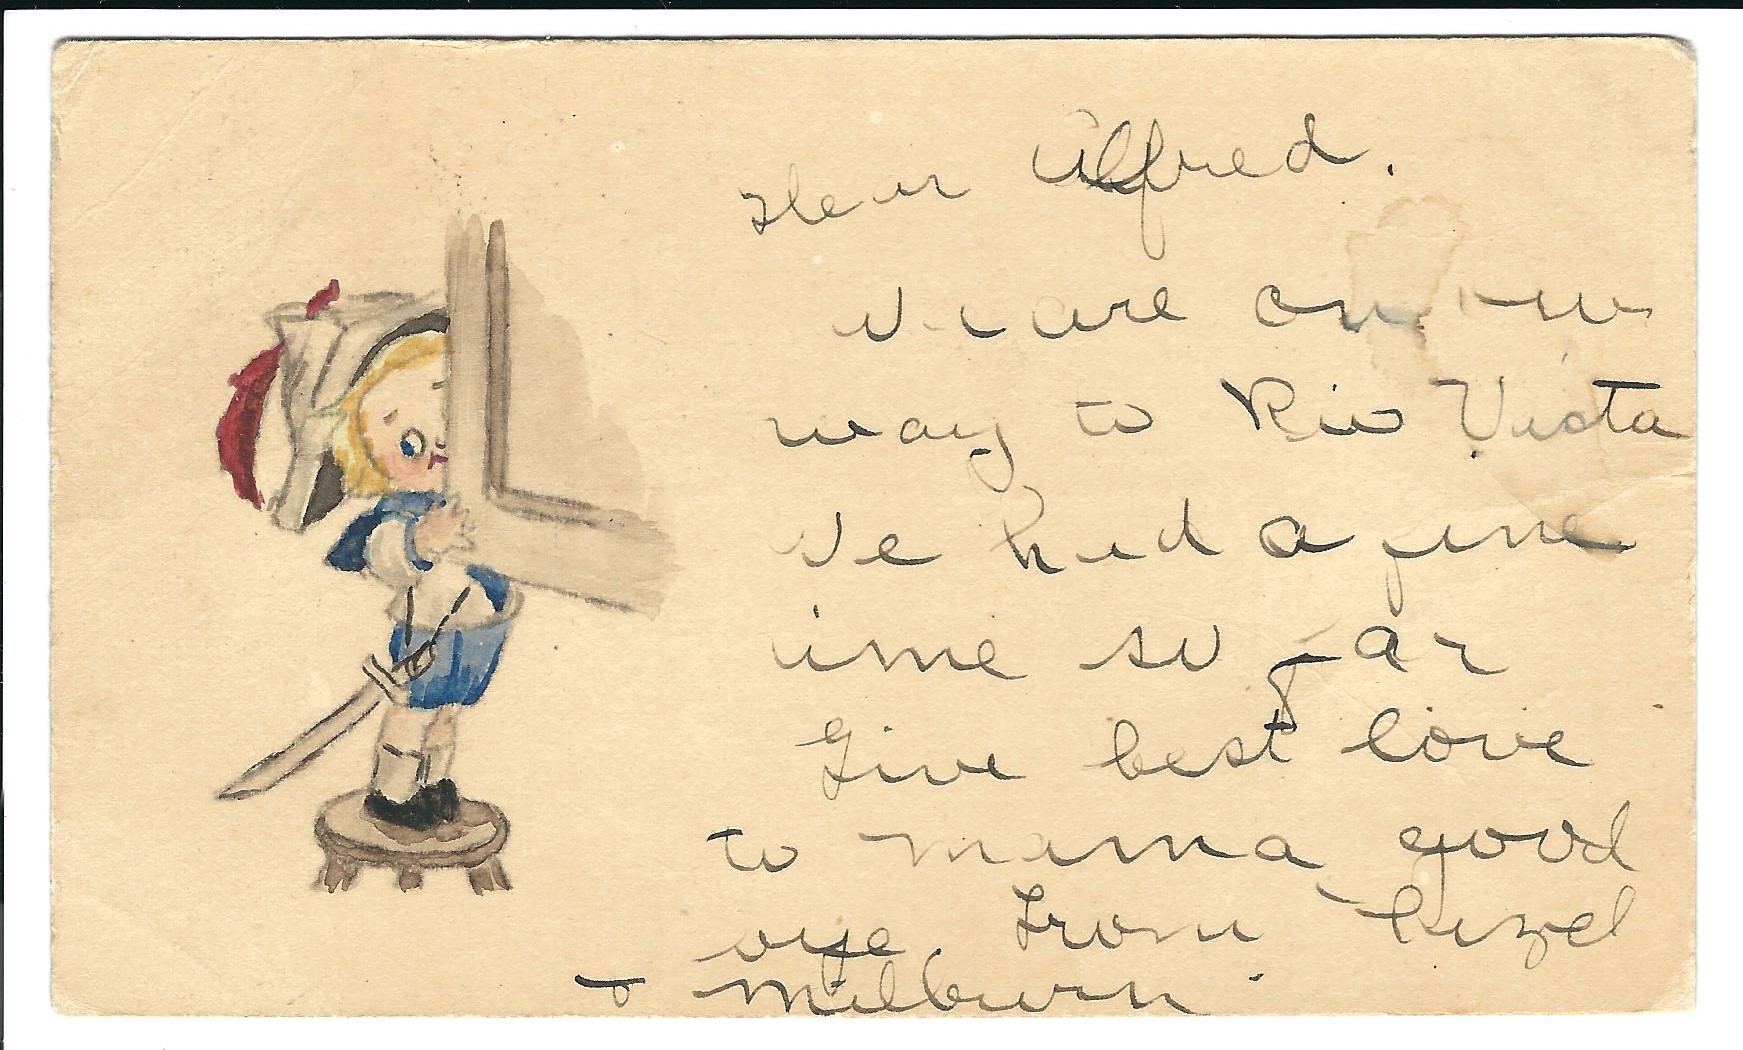 Dear Alfred.
We are on our
way to Rio Vista
We had a fine
time so far
Give best love
to mama good
bye. From Hazel
+ Milburn